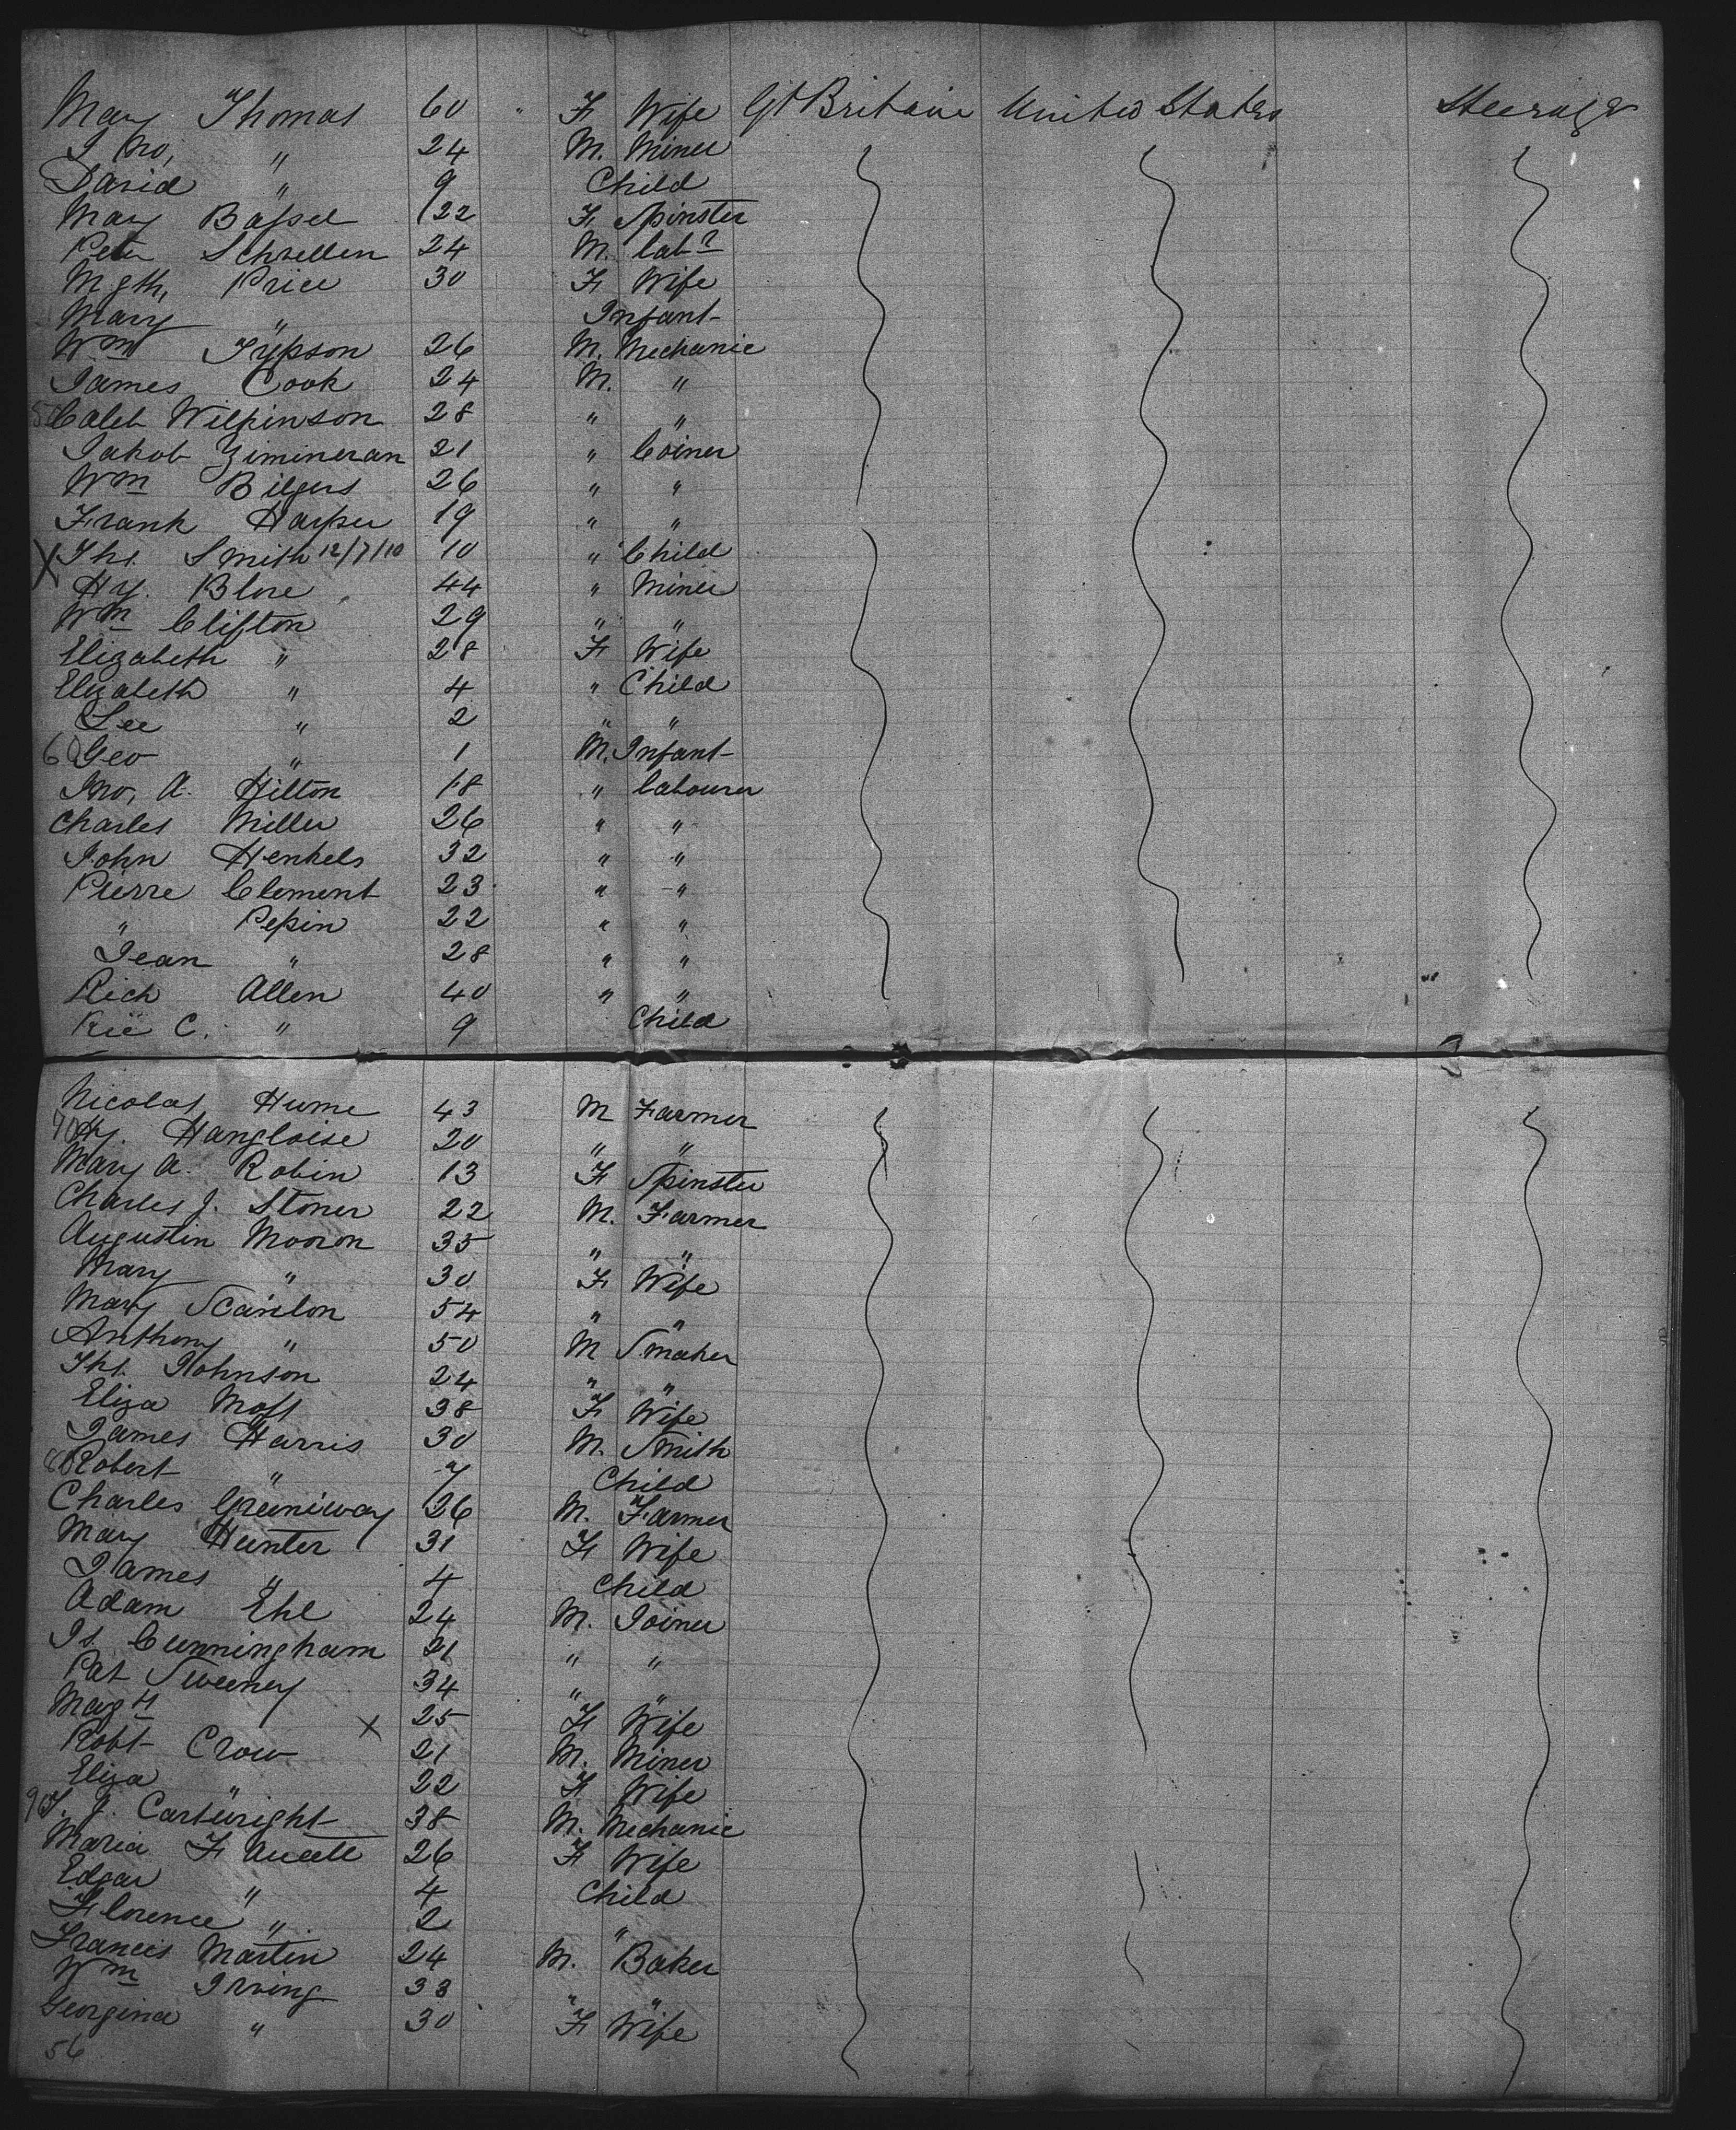 Mary Thomas 60 " F Wife Gt Britain United States Steerage
Jno, " 24 M. Miner
David " 9 Child
Mary Bassel 22 F Spinster
Peter Schrellen 24 M. Labr
Mgth, Price 30 F Wife
Mary " Infant
Wm 26 M. Mechanic
James Cook 24 M. "
Caleb Wilkinson 28 " "
Jakob 21 " Coiner
Wm Bilgers 26 " "
Frank Harper 19 " "
X Ths. Smith 12/7/10 10 " Child
Hy. Blore 44 " Miner
Wm Clifton 29 " "
Elizabeth " 28 F Wife
Elizabeth " 4 " Child
Lee " 2 " "
60 Geo " 1 M. Infant
Jno, A. Hilton 18 " Labourer
Charles Miller 26 " "
John Henkels 32 " "
Pierre Clement 23 " "
" Pepin 22 " "
Jean " 28 " "
Rich Allen 40 " "
Ric C. " 9 Child
Nicolas Hume 43 M Farmer
70 Hy. Hangloise 20 " "
Mary A. Robin 13 F Spinster
Charles J. Stoner 22 M. Farmer
Augustin Mooron 35 " "
Mary " 30 F Wife
Mary Scanlon 54 " "
Anthony " 50 M Smaker
Ths. Johnson 24 " "
Eliza Moss 38 F Wife
James Harris 30 M. Smith
80 Robert " 7 Child
Charles Greeniway 26 M. Farmer
Mary Hunter 31 F Wife
James " 4 Child
Adam Ehl 24 M. Joiner
Js. Cunningham 21 " "
Pat Sweeney 34 " "
Mag " X 25 F Wife
Robt Crow 21 M. Miner
Eliza " 22 F Wife
90 T. J. Cartwright 38 M. Mechanic
Maria F 26 F Wife
Edgar " 4 Child
Florence " 2 "
Francis Martin 24 M. Baker
Wm Irving 33 " "
Georgina " 30 F Wife
56